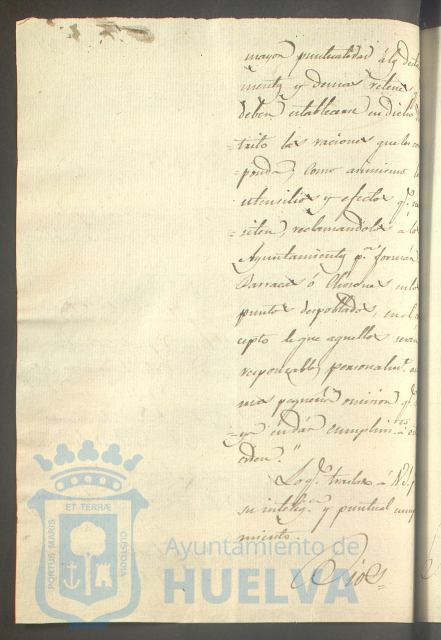 mayor puntualidad á los desta
mentos y demas retenes q
deben establecerse en dicho
trito las raciones que les co
prenda, como asimismo l
utensilios y efectos q.e ne
siten, reclamandolos á lo
Ayuntamientos p.a formar
Barracas ó Chozones en lo
puntos despoblados, en el
cepto de que aquellos seran
responsables personalm.te
mas pequeña omision q.e
ya en dár cumplim.to á
orden."
Lo q.e traslado á V.S. p
su intelig.a y puntual cump
miento.
Dios
ET TERRÆ
PORTUS MARIS
CUSTODIA
Ayuntamiento de
HUELVA